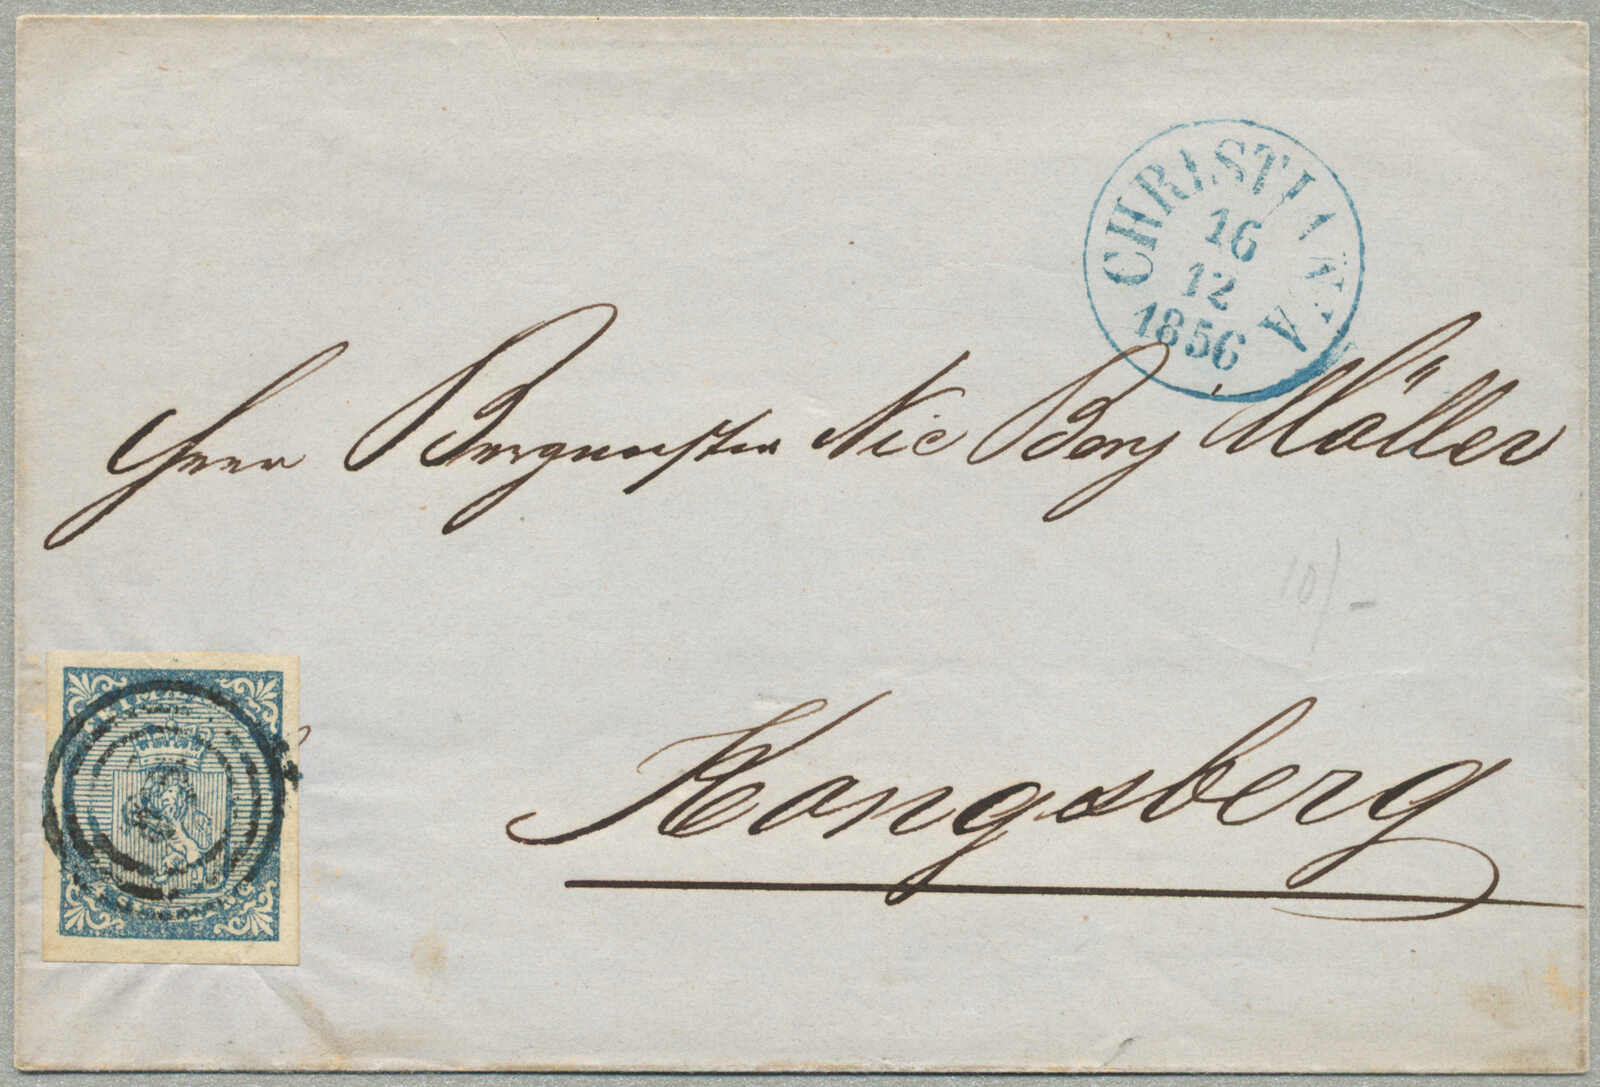 CHRISTIANIA
16
12
1856
Herr Bergmester Nic Benj Möller
10/-
Kongsberg